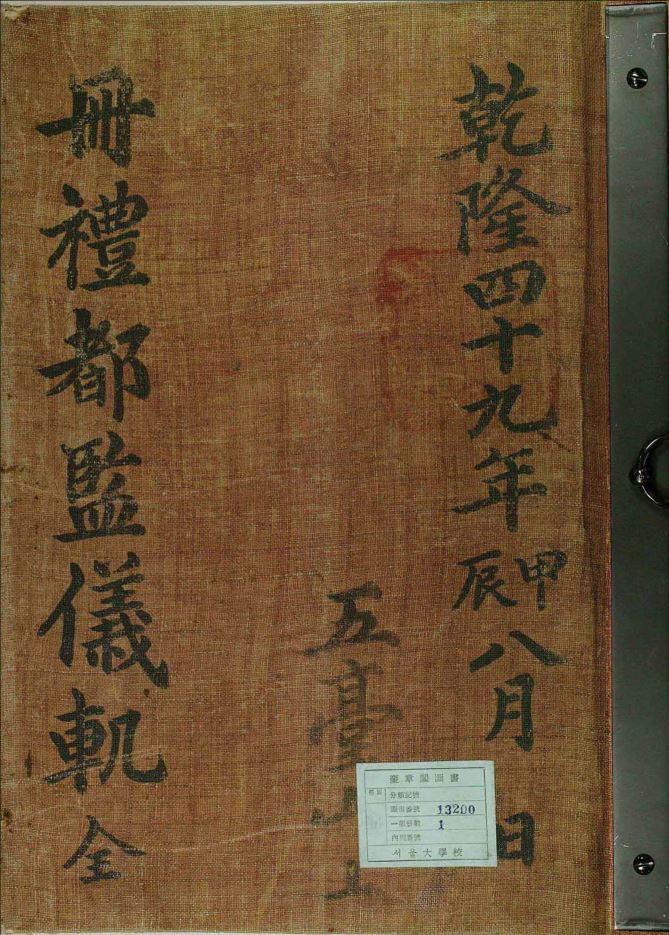 乾隆四十九年甲辰八月 日
五臺山上
冊禮都監儀軌全
奎章閣圖書
分類記號
圖書番號 13200
一部冊數 1
內閣番號
서울大學校